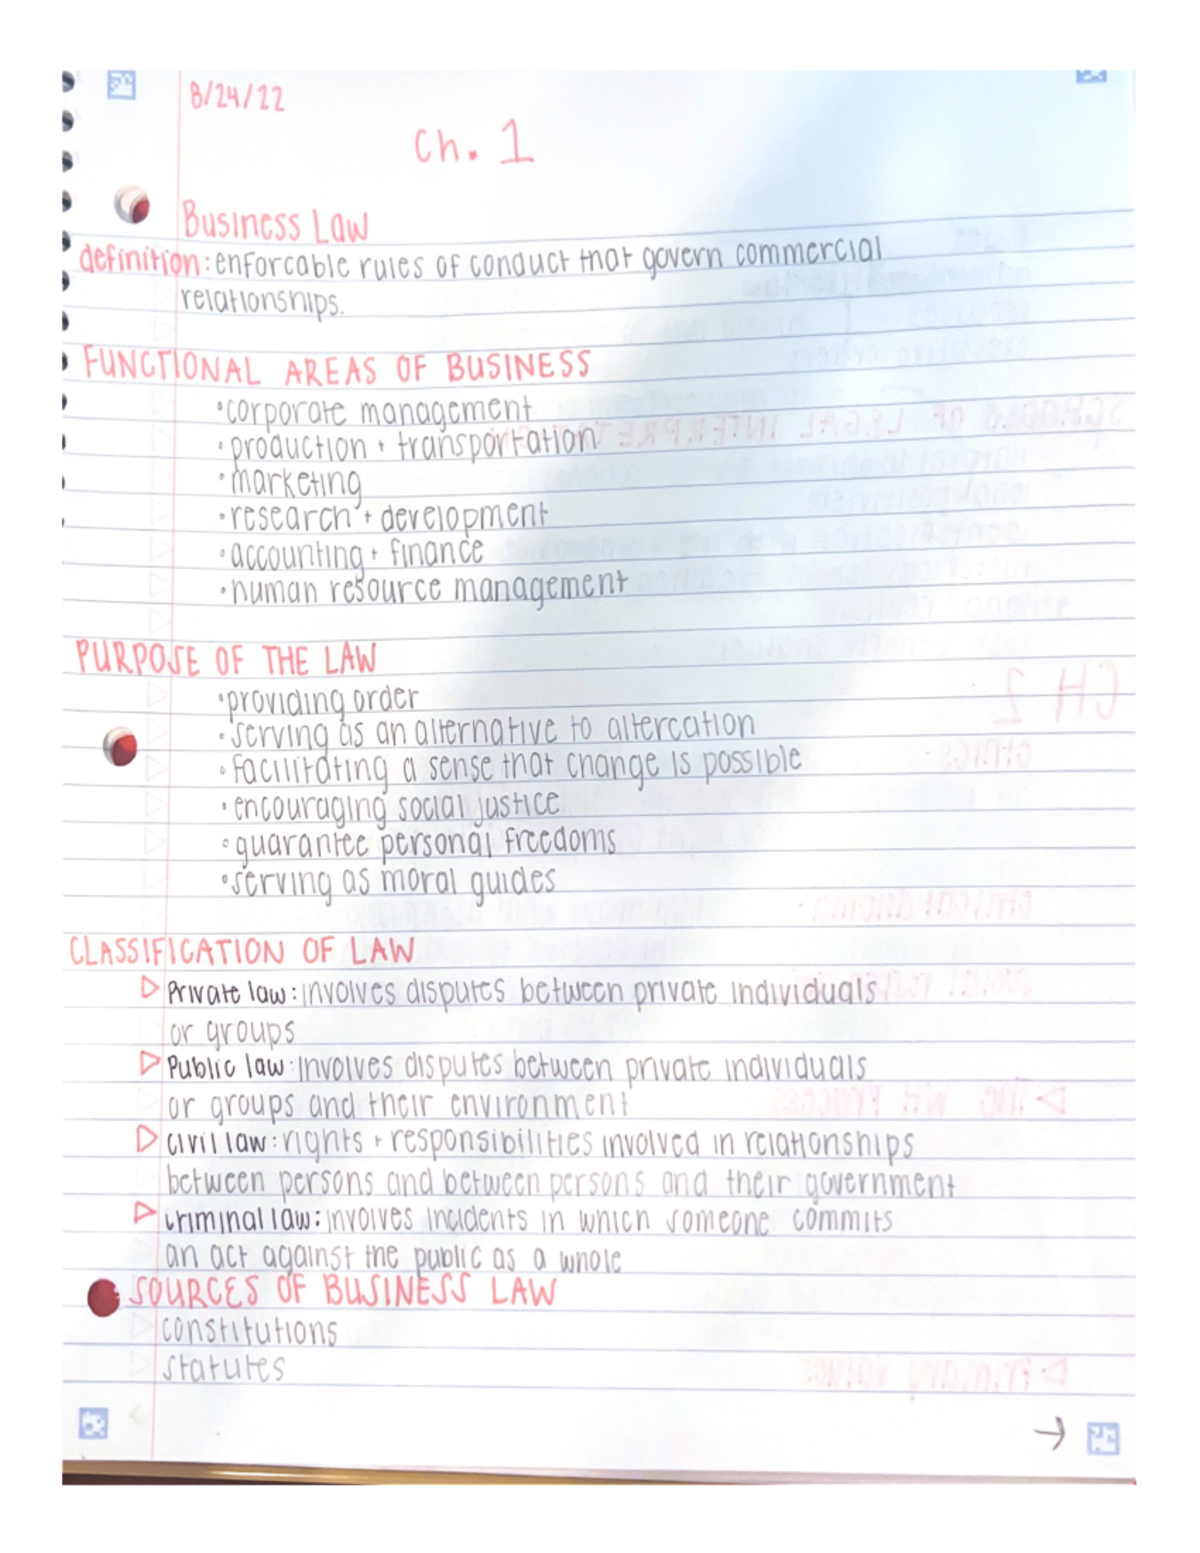 8/24/22
Ch. 1
Business Law
definition: enforcable rules of conduct that govern commercial
relationships.
FUNCTIONAL AREAS OF BUSINESS
•corporate management
•production + transportation
•marketing
•research + development
•accounting + finance
•human resource management
PURPOSE OF THE LAW
•providing order
•serving as an alternative to altercation
•facilitating a sense that change is possible
•encouraging social justice
•guarantee personal freedoms
•serving as moral guides
CLASSIFICATION OF LAW
▷ Private law: involves disputes between private individuals
or groups
▷ Public law: involves disputes between private individuals
or groups and their environment
▷ civil law: rights + responsibilities involved in relationships
between persons and between persons and their government
▷ criminal law: involves incidents in which someone commits
an act against the public as a whole
SOURCES OF BUSINESS LAW
constitutions
statutes
→